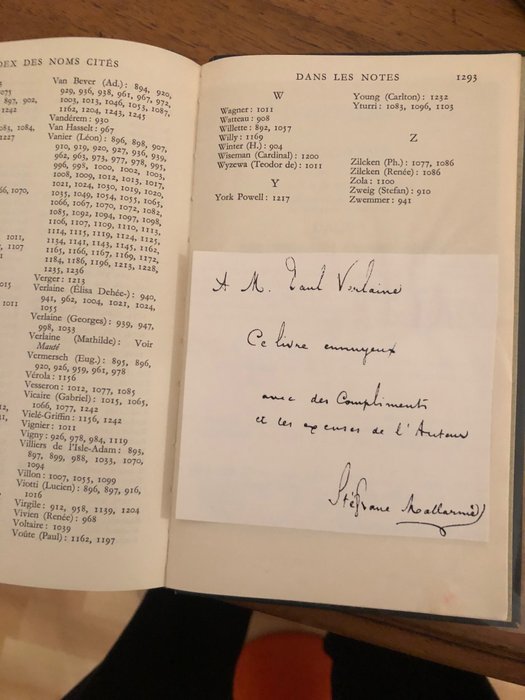 DEX DES NOMS CITÉS
075
897, 902,
1242
083, 1084,
1227
66, 1070,
1011,
1107
1011
Van Bever (Ad.) : 894, 920,
929, 936, 938, 961, 967, 972,
1003, 1013, 1046, 1053, 1087,
1162, 1204, 1243, 1245
Vandérem : 930
Van Hasselt : 967
Vanier (Léon) : 896, 898, 907,
910, 919, 920, 927, 936, 939,
962, 963, 973, 977, 978, 995,
996, 998, 1000, 1002, 1003,
1008, 1009, 1012, 1013, 1017,
1021, 1024, 1030, 1019, 1020,
1035, 1049, 1054, 1055, 1065,
1066, 1067, 1070, 1072, 1082,
1085, 1092, 1094, 1097, 1098,
1106, 1107, 1109, 1110, 1113,
1114, 1115, 1119, 1124, 1125,
1134, 1141, 1143, 1145, 1162,
1165, 1166, 1167, 1169, 1172,
1184, 1186, 1196, 1213, 1228,
1235, 1236
Verger : 1213
Verlaine (Élisa Dehée-) : 940,
941, 962, 1004, 1021, 1024,
1055
Verlaine (Georges) : 939, 947,
998, 1033
Verlaine (Mathilde) : Voir
Mauté
Vermersch (Eug.) : 895, 896,
920, 926, 959, 961, 978
Vérola : 1156
Vesseron : 1012, 1077, 1085
Vicaire (Gabriel) : 1015, 1065,
1066, 1077, 1242
Vielé-Griffin : 1156, 1242
Vignier : 1011
Vigny : 926, 978, 984, 1119
Villiers de l'Isle-Adam : 893,
897, 899, 988, 1033, 1070,
1094
Villon : 1007, 1055, 1099
Viotti (Lucien) : 896, 897, 916,
1016
Virgile : 912, 958, 1139, 1204
Vivien (Renée) : 968
Voltaire : 1039
Voûte (Paul) : 1162, 1197
DANS LES NOTES 1293
W
Wagner : 1011
Watteau : 908
Willette : 892, 1057
Willy : 1169
Winter (H.) : 904
Wiseman (Cardinal) : 1200
Wyzewa (Teodor de) : 1011
Y
York Powell : 1217
Young (Carlton) : 1232
Yturri : 1083, 1096, 1103
Z
Zilcken (Ph.) : 1077, 1086
Zilcken (Renée) : 1086
Zola : 1100
Zweig (Stefan) : 910
Zwemmer : 941
A M. Paul Verlaine
Ce livre ennuyeux
avec des Compliments
et les excuses de l'Auteur
Stéfane Mallarmé